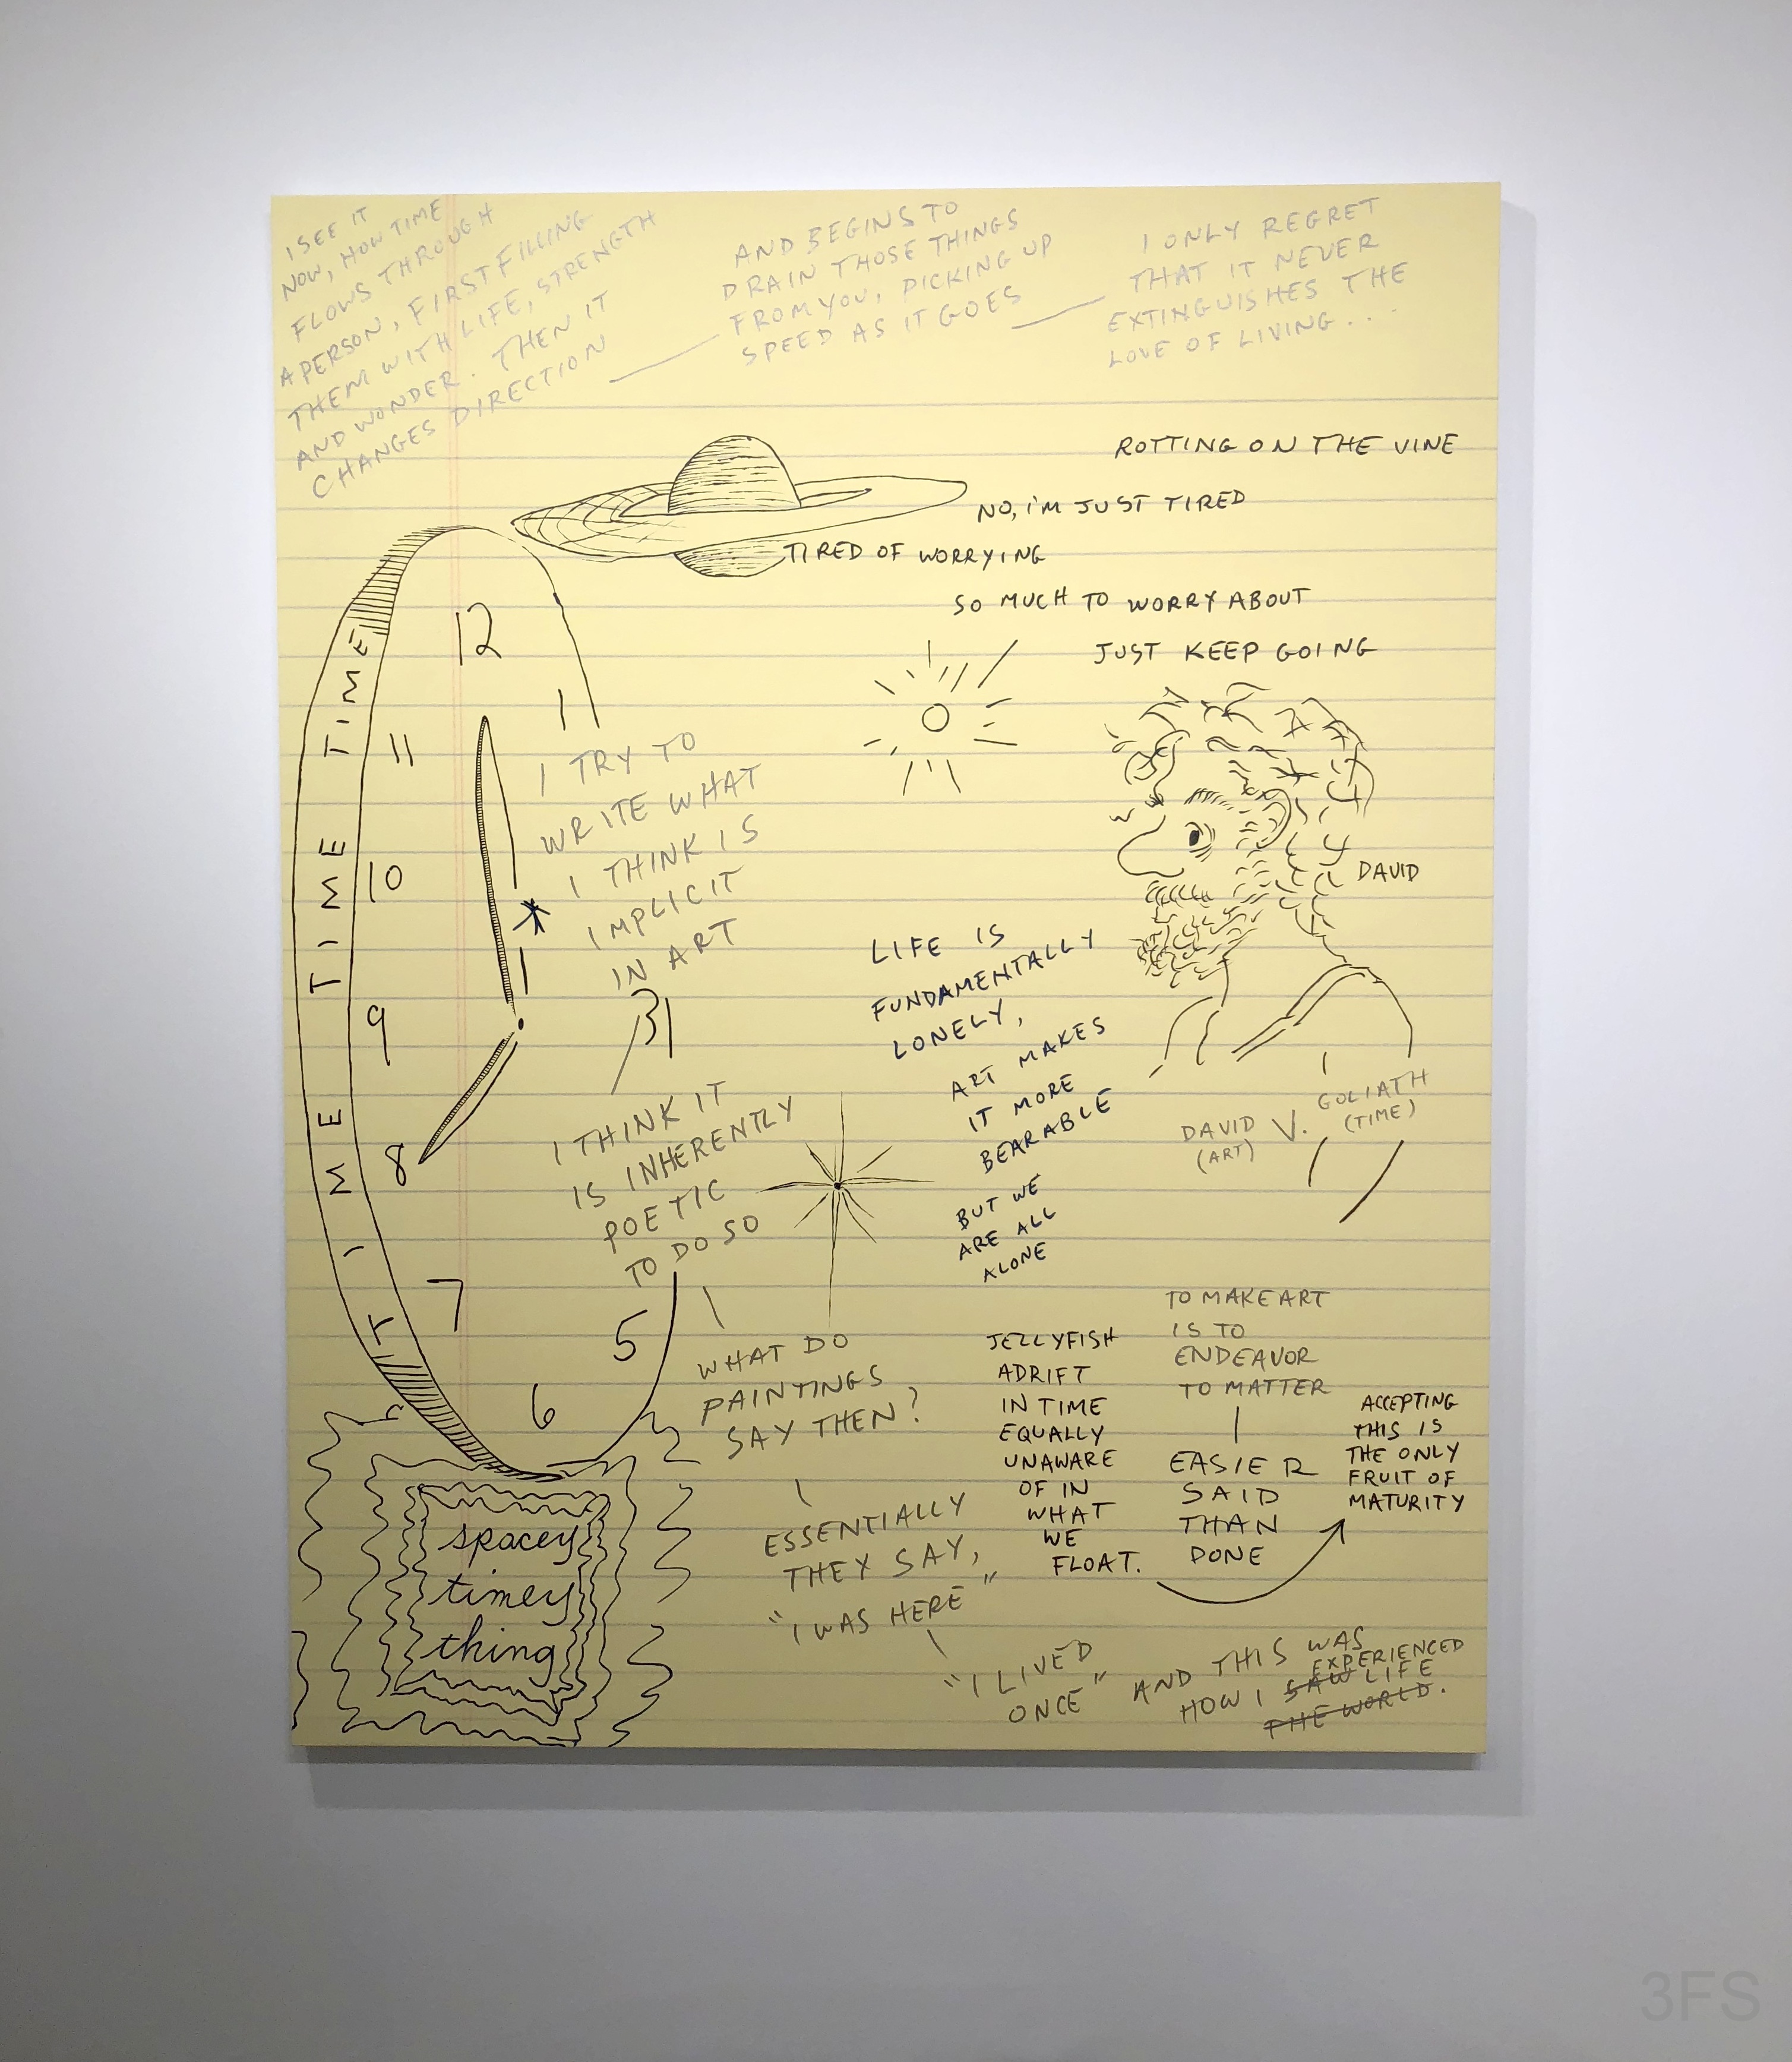 I SEE IT
NOW, HOW TIME
FLOWS THROUGH
A PERSON, FIRST FILLING
THEM WITH LIFE, STRENGTH
AND WONDER. THEN IT
CHANGES DIRECTION
AND BEGINS TO
DRAIN THOSE THINGS
FROM YOU, PICKING UP
SPEED AS IT GOES
I ONLY REGRET
THAT IT NEVER
EXTINGUISHES THE
LOVE OF LIVING...
ROTTING ON THE VINE
NO, i'M JUST TIRED
TIRED OF WORRYING
SO MUCH TO WORRY ABOUT
JUST KEEP GOING
TIME TIME TIME TIME
12
1
11
10
9
8
7
6
5
31
I TRY TO
WRITE WHAT
I THINK IS
IMPLICIT
IN ART
I THINK IT
IS INHERENTLY
POETIC
TO DO SO
WHAT DO
PAINTINGS
SAY THEN?
ESSENTIALLY
THEY SAY,
"I WAS HERE"
"I LIVED
ONCE"
AND THIS WAS
EXPERIENCED
HOW I SAW LIFE
THE WORLD.
DAVID
LIFE IS
FUNDAMENTALLY
LONELY,
ART MAKES
IT MORE
BEARABLE
BUT WE
ARE ALL
ALONE
DAVID V. GOLIATH
(ART) (TIME)
JELLYFISH
ADRIFT
IN TIME
EQUALLY
UNAWARE
OF IN
WHAT
WE
FLOAT.
TO MAKE ART
IS TO
ENDEAVOR
TO MATTER
EASIER
SAID
THAN
DONE
ACCEPTING
THIS IS
THE ONLY
FRUIT OF
MATURITY
spacey
timey
thing
3FS